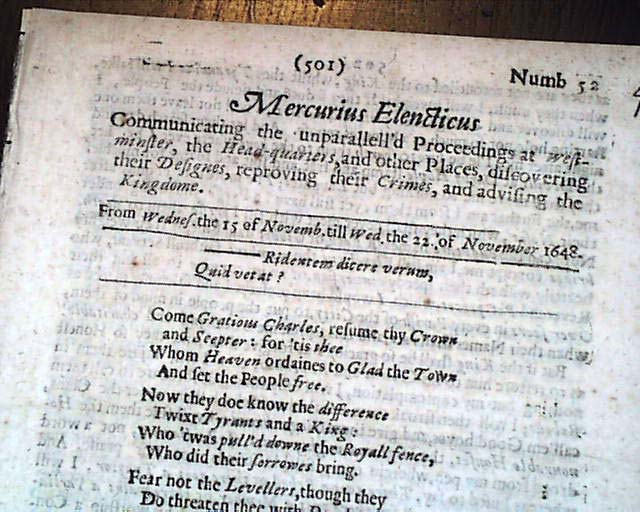 (501)
Numb 52
Mercurius Elencticus
Communicating the unparallell'd Proceedings at West-
minster, the Head-quarters, and other Places, discovering
their Designes, reproving their Crimes, and advising the
Kingdome.
From Wednes. the 15 of Novemb. till Wed. the 22. of November 1648.
Ridentem dicere verum,
Quid vetat?
Come Gratious Charles, resume thy Crown
and Scepter: for 'tis thee
Whom Heaven ordaines to Glad the Town
And set the People free.
Now they doe know the difference
Twixt Tyrants and a King:
Who 'twas pull'd downe the Royall fence,
Who did their sorrowes bring.
Fear not the Levellers, though they
Do threaten thee with